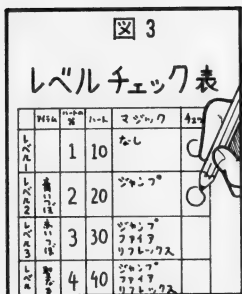 図3
レベルチェック表
アイテム ハートの数 ハート マジック チェッ
レベル1 1 10 なし
レベル2 青いつぼ 2 20 ジャンプ
レベル3 赤いつぼ 3 30 ジャンプ
ファイア
リフレックス
レベル 4 40 ジャンプ
ファイア
リフレックス